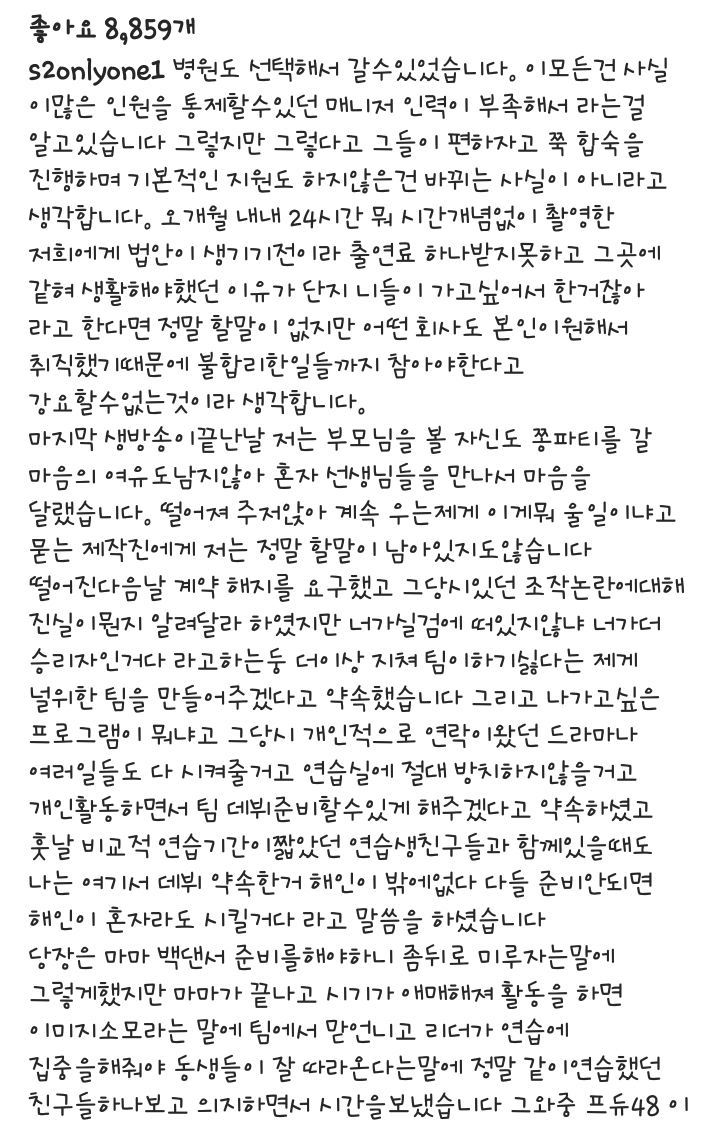 좋아요 8,859개
s2onlyone1 병원도 선택해서 갈수있었습니다. 이모든건 사실
이많은 인원을 통제할수있던 매니저 인력이 부족해서 라는걸
알고있습니다 그렇지만 그렇다고 그들이 편하자고 쭉 합숙을
진행하며 기본적인 지원도 하지않은건 바뀌는 사실이 아니라고
생각합니다. 오개월 내내 24시간 뭐 시간개념없이 촬영한
저희에게 법안이 생기기전이라 출연료 하나받지못하고 그곳에
갇혀 생활해야했던 이유가 단지 니들이 가고싶어서 한거잖아
라고 한다면 정말 할말이 없지만 어떤 회사도 본인이원해서
취직했기때문에 불합리한일들까지 참아야한다고
강요할수없는것이라 생각합니다.
마지막 생방송이끝난날 저는 부모님을 볼 자신도 쫑파티를 갈
마음의 여유도남지않아 혼자 선생님들을 만나서 마음을
달랬습니다. 떨어져 주저앉아 계속 우는제게 이게뭐 울일이냐고
묻는 제작진에게 저는 정말 할말이 남아있지도않습니다
떨어진다음날 계약 해지를 요구했고 그당시있던 조작논란에대해
진실이뭔지 알려달라 하였지만 너가실검에 떠있지않냐 너가더
승리자인거다 라고하는둥 더이상 지쳐 팀이하기싫다는 제게
널위한 팀을 만들어주겠다고 약속했습니다 그리고 나가고싶은
프로그램이 뭐냐고 그당시 개인적으로 연락이왔던 드라마나
여러일들도 다 시켜줄거고 연습실에 절대 방치하지않을거고
개인활동하면서 팀 데뷔준비할수있게 해주겠다고 약속하셨고
훗날 비교적 연습기간이짧았던 연습생친구들과 함께있을때도
나는 여기서 데뷔 약속한거 해인이 밖에없다 다들 준비안되면
해인이 혼자라도 시킬거다 라고 말씀을 하셨습니다
당장은 마마 백댄서 준비를해야하니 좀뒤로 미루자는말에
그렇게했지만 마마가 끝나고 시기가 애매해져 활동을 하면
이미지소모라는 말에 팀에서 맏언니고 리더가 연습에
집중을해줘야 동생들이 잘 따라온다는말에 정말 같이연습했던
친구들하나보고 의지하면서 시간을보냈습니다 그와중 프듀48 이